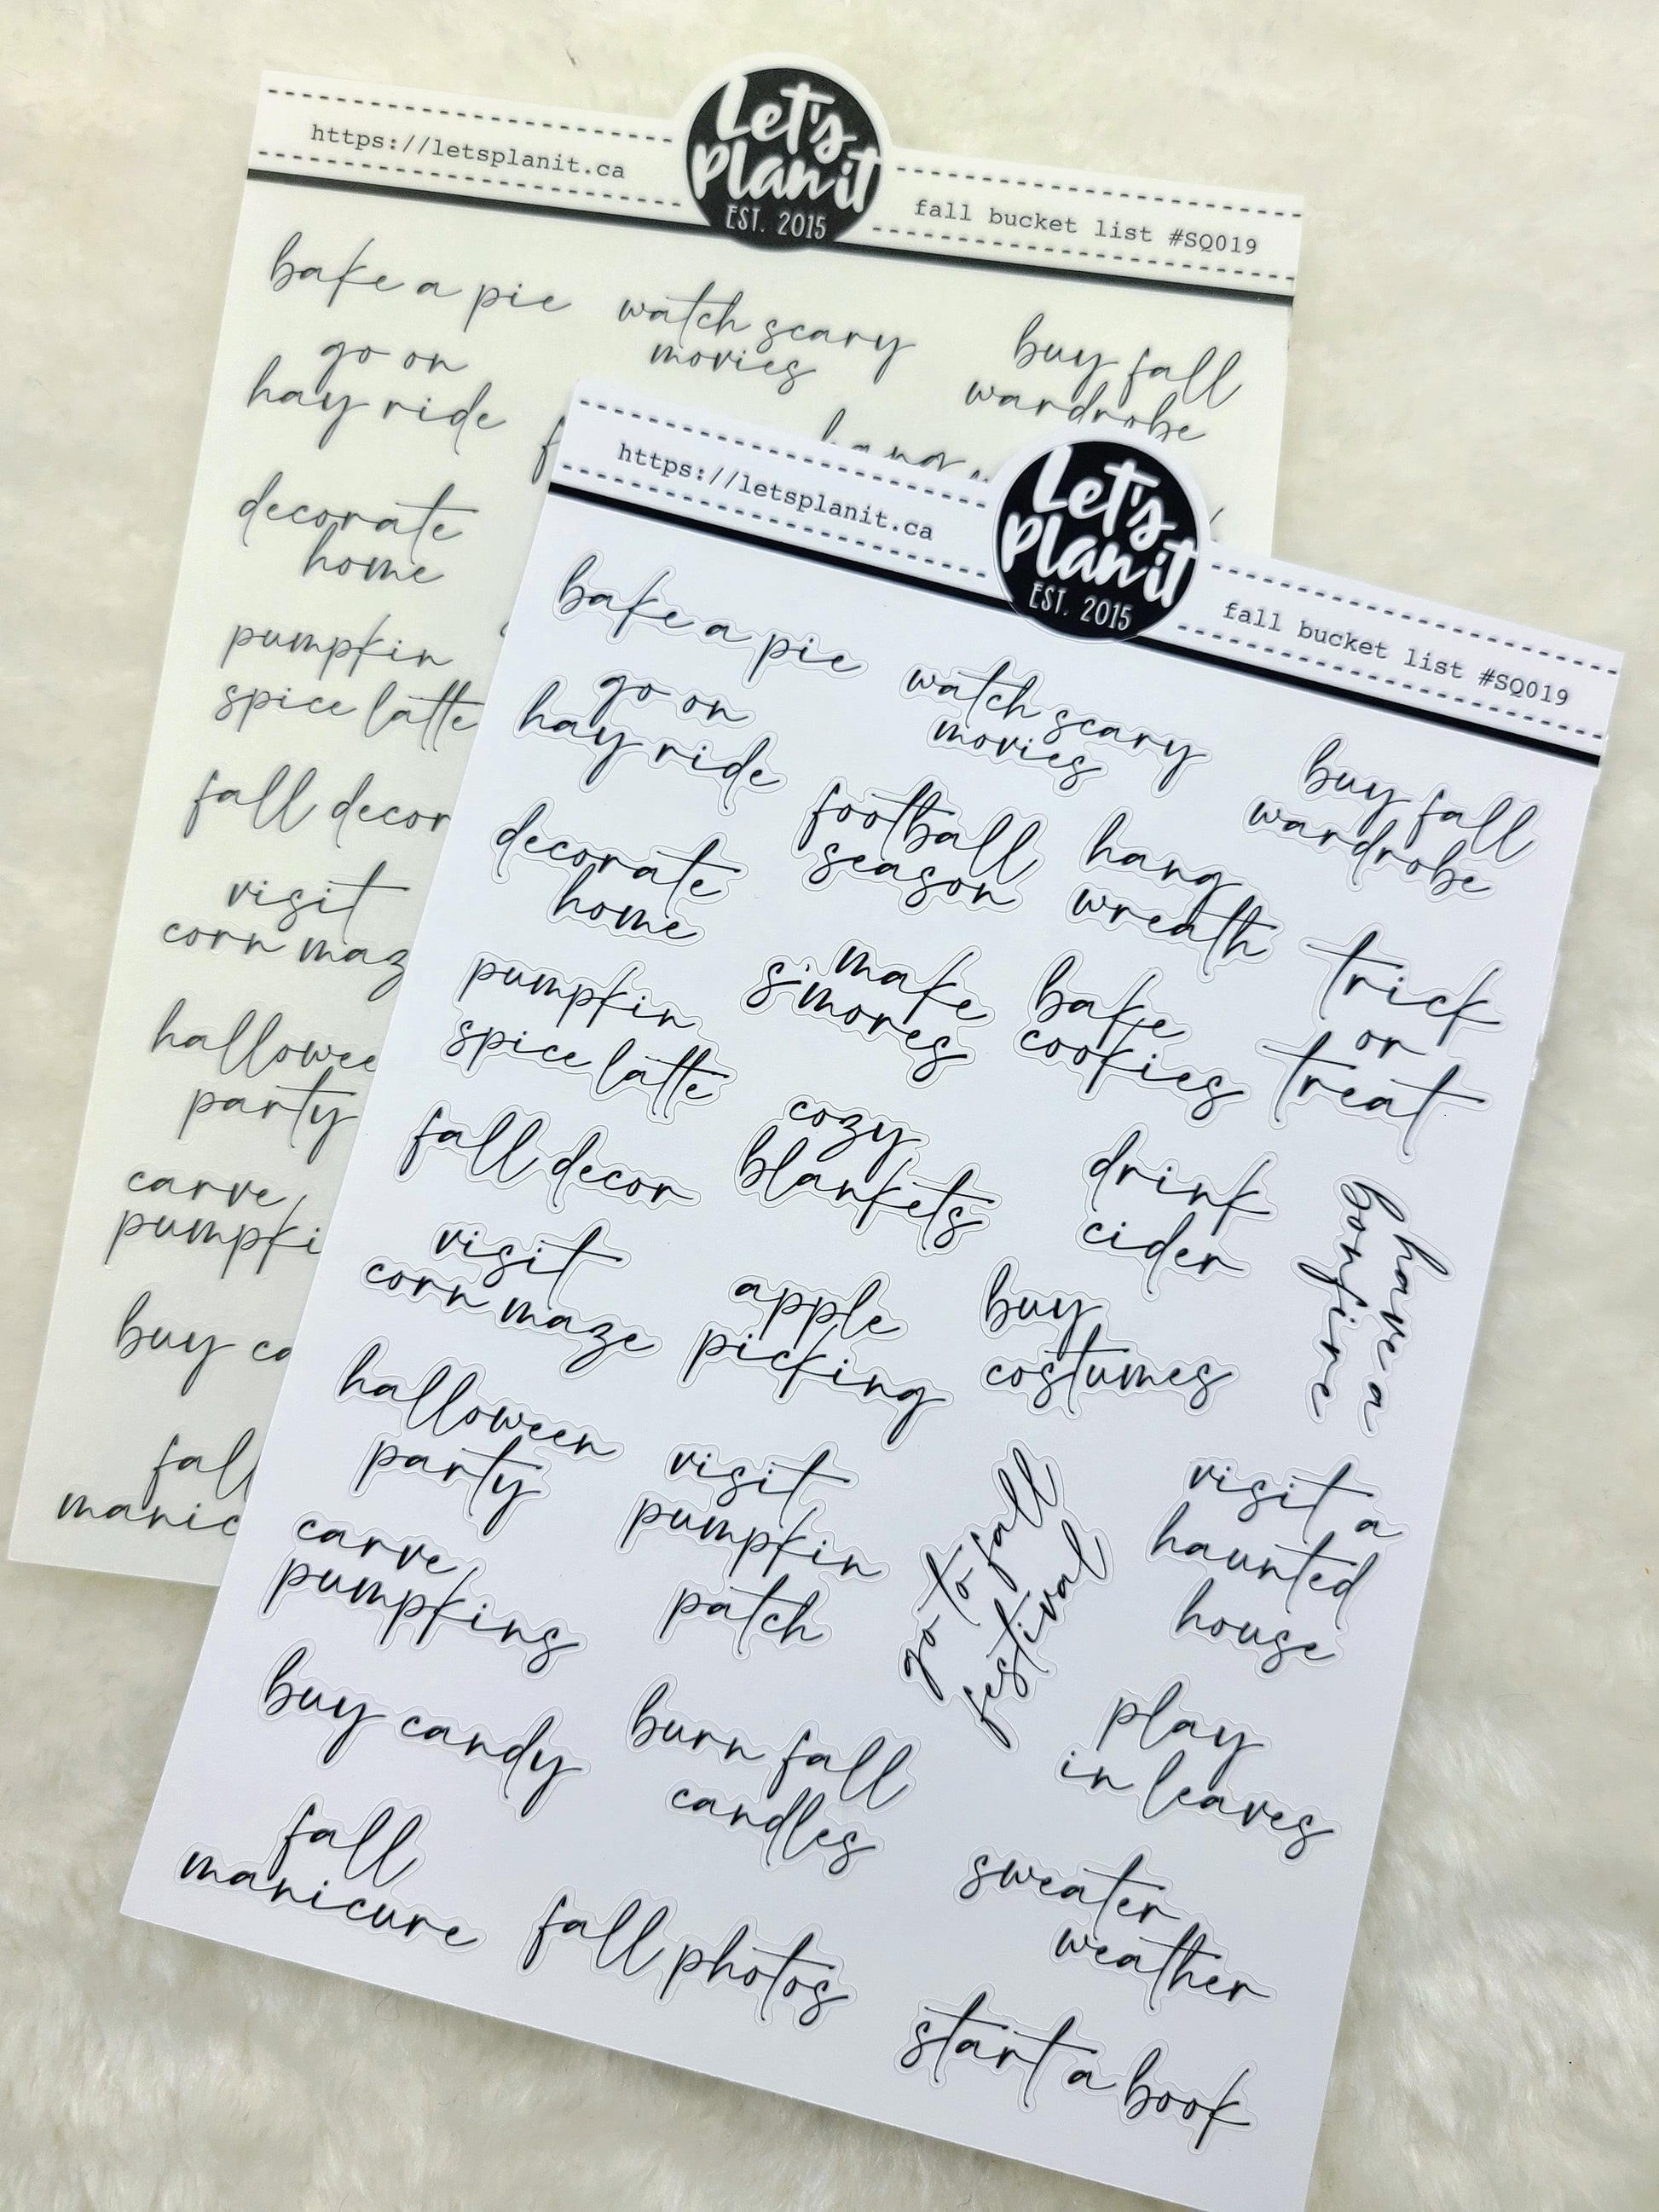 https://letsplanit.ca
Let's
Plan it
EST. 2015
fall bucket list #SQ019
bake a pie
watch scary
movies
buy fall
wardrobe
go on
hay ride
hang
decorate
home
pumpkin
spice latte
fall decor
visit
corn maz
hallowee
party
carve
pumpki
buy ca
fall
manic
https://letsplanit.ca
Let's
Plan it
EST. 2015
fall bucket list #SQ019
bake a pie
watch scary
movies
buy fall
wardrobe
go on
hay ride
football
season
hang
wreath
decorate
home
make
s'mores
bake
cookies
trick
or
treat
pumpkin
spice latte
cozy
blankets
drink
cider
have a
bonfire
fall decor
visit
corn maze
apple
picking
buy
costumes
halloween
party
visit
pumpkin
patch
go to fall
festival
visit a
haunted
house
carve
pumpkins
buy candy
burn fall
candles
play
in leaves
fall
manicure
fall photos
sweater
weather
start a book